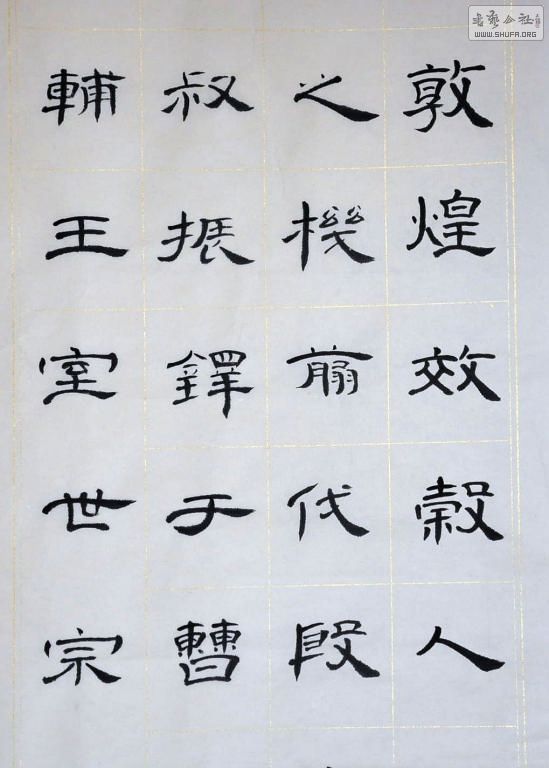 敦煌效穀人
之機翦伐殷
叔振鐸于曹
輔王室世宗
书艺公社
WWW.SHUFA.ORG